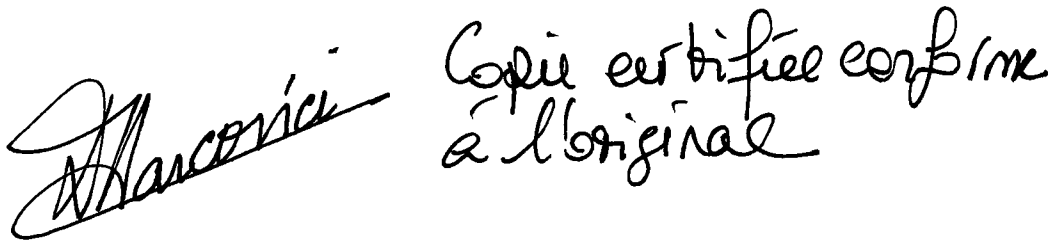 Marcovici
Copie certifiée conforme
à l'original